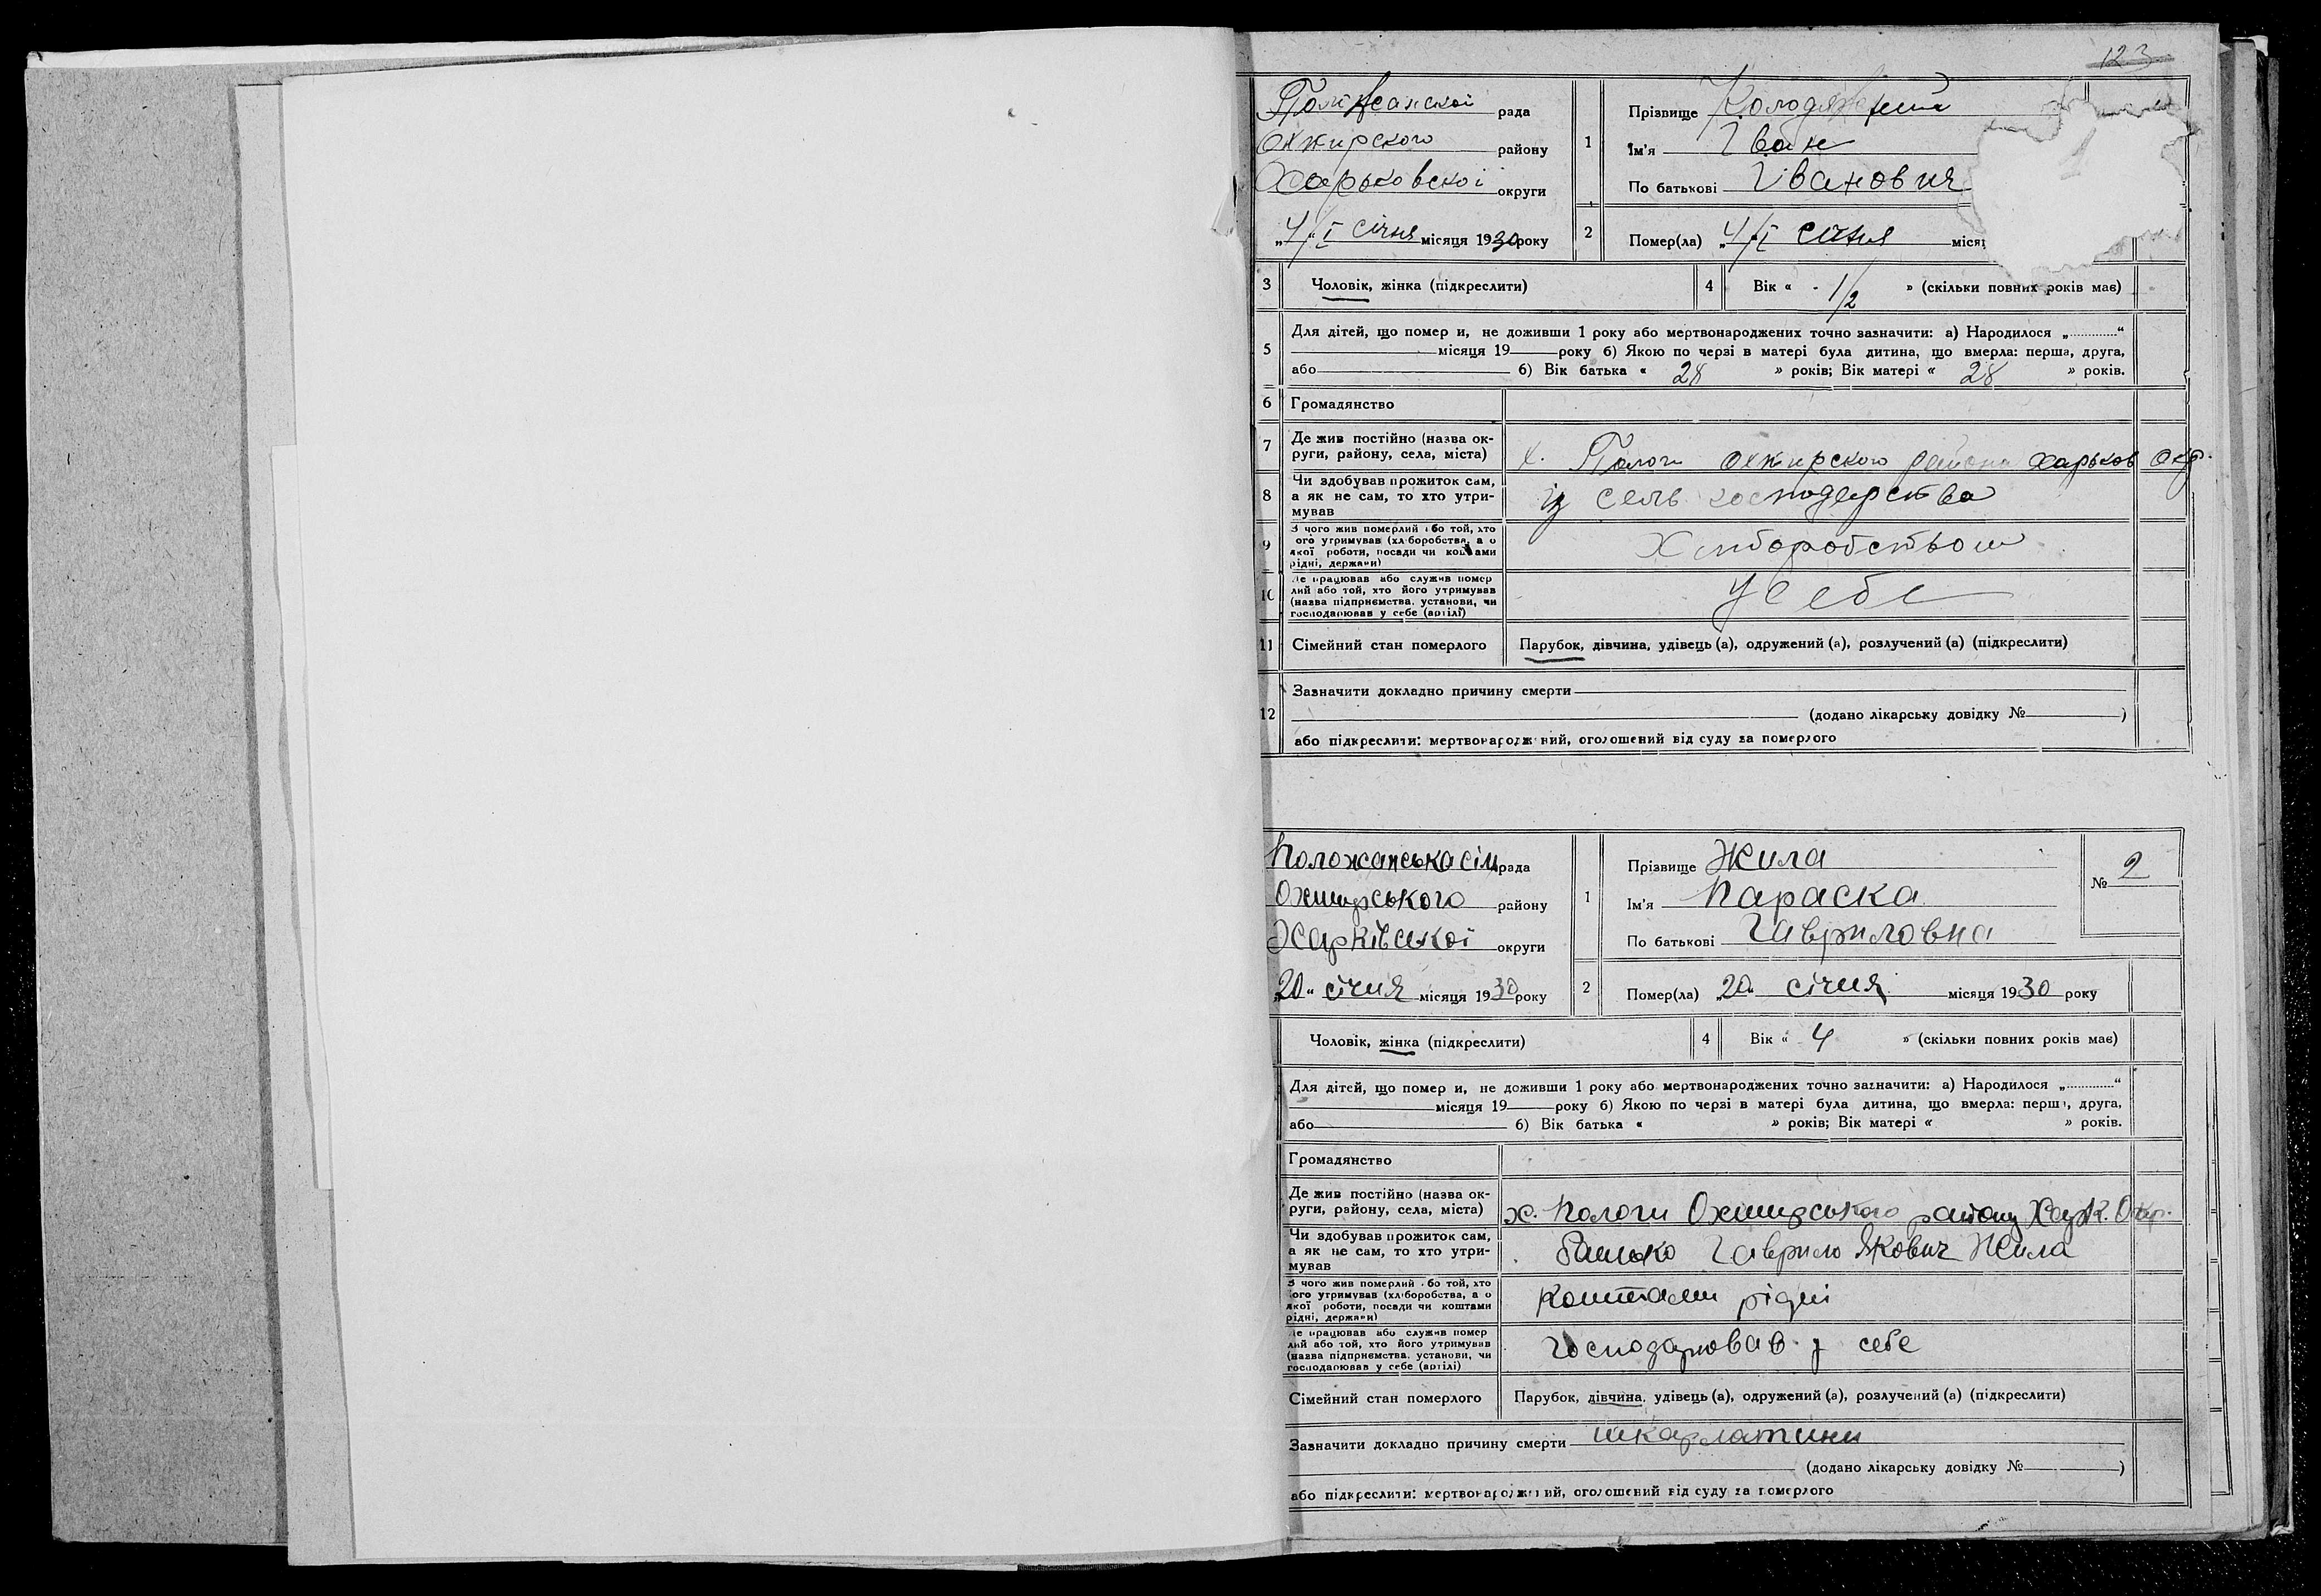 123
Положанской рада
Охтирского району
Харьковской округи
„4/I січня місяця 1930 року
1
Прізвище Колодяжний
Ім'я Іван
По батькові Іванович
2 Помер(ла) „4/I січня місяц
3 Чоловік, жінка (підкреслити)
4 Вік « 1/2 » (скільки повних років має)
5 Для дітей, що помер и, не доживши 1 року або мертвонароджених точно зазначити: а) Народилося „..........“
місяця 19 року б) Якою по черзі в матері була дитина, що вмерла: перша, друга,
або б) Вік батька « 28 » років; Вік матері « 28 » років.
6 Громадянство
7 Де жив постійно (назва округи, району, села, міста)
х. Пологи района Харьков окр.
8 Чи здобував прожиток сам, а як не сам, то хто утримував
із сель господарства
9 З чого жив померлий або той, хто ого утримував (хліборобства, а о якої роботи, посади чи коштами рідні, держави)
Хліборобством
10 Де працював або служив помер лий або той, хто його утримував (назва підприємства, установи, чи господарював у себе (артілі)
У себе
11 Сімейний стан померлого
Парубок, дівчина, удівець (а), одружений (а), розлучений (а) (підкреслити)
12 Зазначити докладно причину смерти
(додано лікарську довідку № )
або підкреслити: мертвонароджений, оголошений від суду за померлого
Положанська сіл рада
району
Харківської округи
„20“ січня місяця 1930 року
1
Прізвище Жила
Ім'я Параска
По батькові Гавриловна
№ 2
2 Помер(ла) „20“ січня місяця 1930 року
Чоловік, жінка (підкреслити)
4 Вік « 4 » (скільки повних років має)
Для дітей, що помер и, не доживши 1 року або мертвонароджених точно зазначити: а) Народилося „..........“
місяця 19 року б) Якою по черзі в матері була дитина, що вмерла: перша, друга,
або б) Вік батька « » років; Вік матері « » років.
Громадянство
Де жив постійно (назва округи, району, села, міста)
х. Пологи району Харк. Окр.
Чи здобував прожиток сам, а як не сам, то хто утримував
батько Гаврило Якович Жила
З чого жив померлий або той, хто ого утримував (хліборобства, а о якої роботи, посади чи коштами рідні, держави)
коштами рідні
Де працював або служив помер лий або той, хто його утримував (назва підприємства, установи, чи господарював у себе (артілі)
Господарював у себе
Сімейний стан померлого
Парубок, дівчина, удівець (а), одружений (а), розлучений (а) (підкреслити)
Зазначити докладно причину смерти шкарлатини
(додано лікарську довідку № )
або підкреслити: мертвонароджений, оголошений від суду за померлого